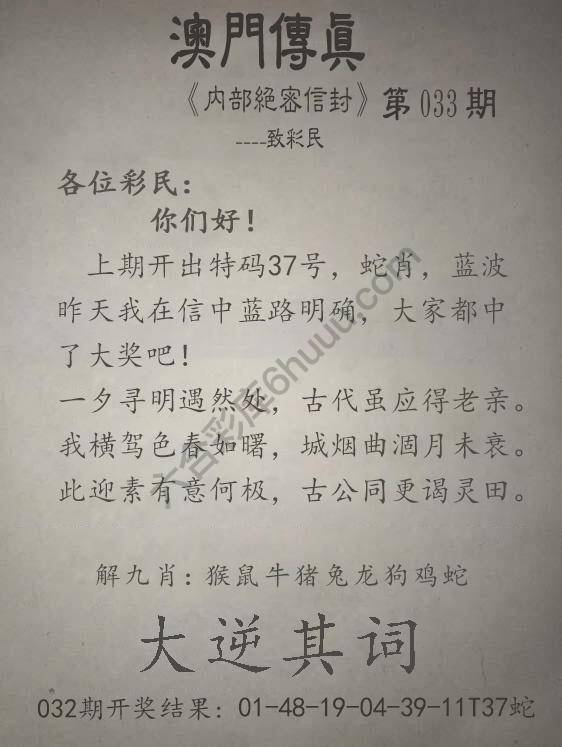 澳門傳眞
《内部絕密信封》第 033 期
----致彩民
各位彩民:
你们好!
上期开出特码37号，蛇肖，蓝波
昨天我在信中蓝路明确，大家都中
了大奖吧!
一夕寻明遇然处，古代虽应得老亲。
我横驾色春如曙，城烟曲涸月未衰。
此迎素有意何极，古公同更谒灵田。
解九肖: 猴鼠牛猪兔龙狗鸡蛇
大逆其词
032期开奖结果: 01-48-19-04-39-11T37蛇
六合彩库6huuu.com